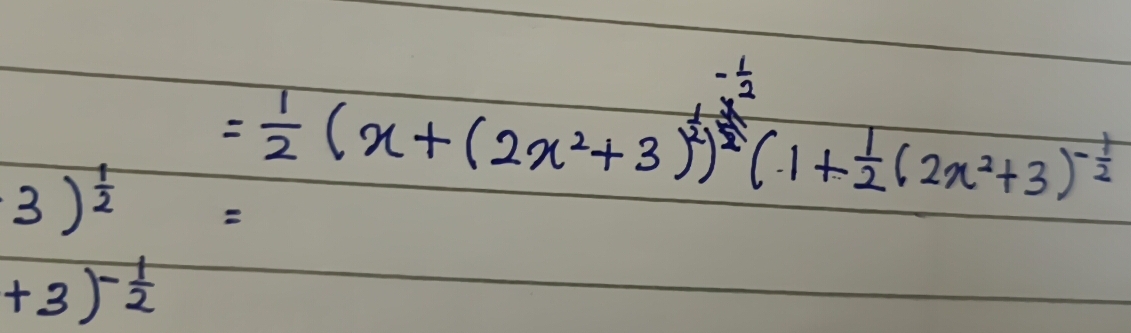 = 1/2 (x + (2x² + 3)^1/2)^-1/2 (1 + 1/2 (2x² + 3)^-1/2
3)^1/2 =
+3)^-1/2